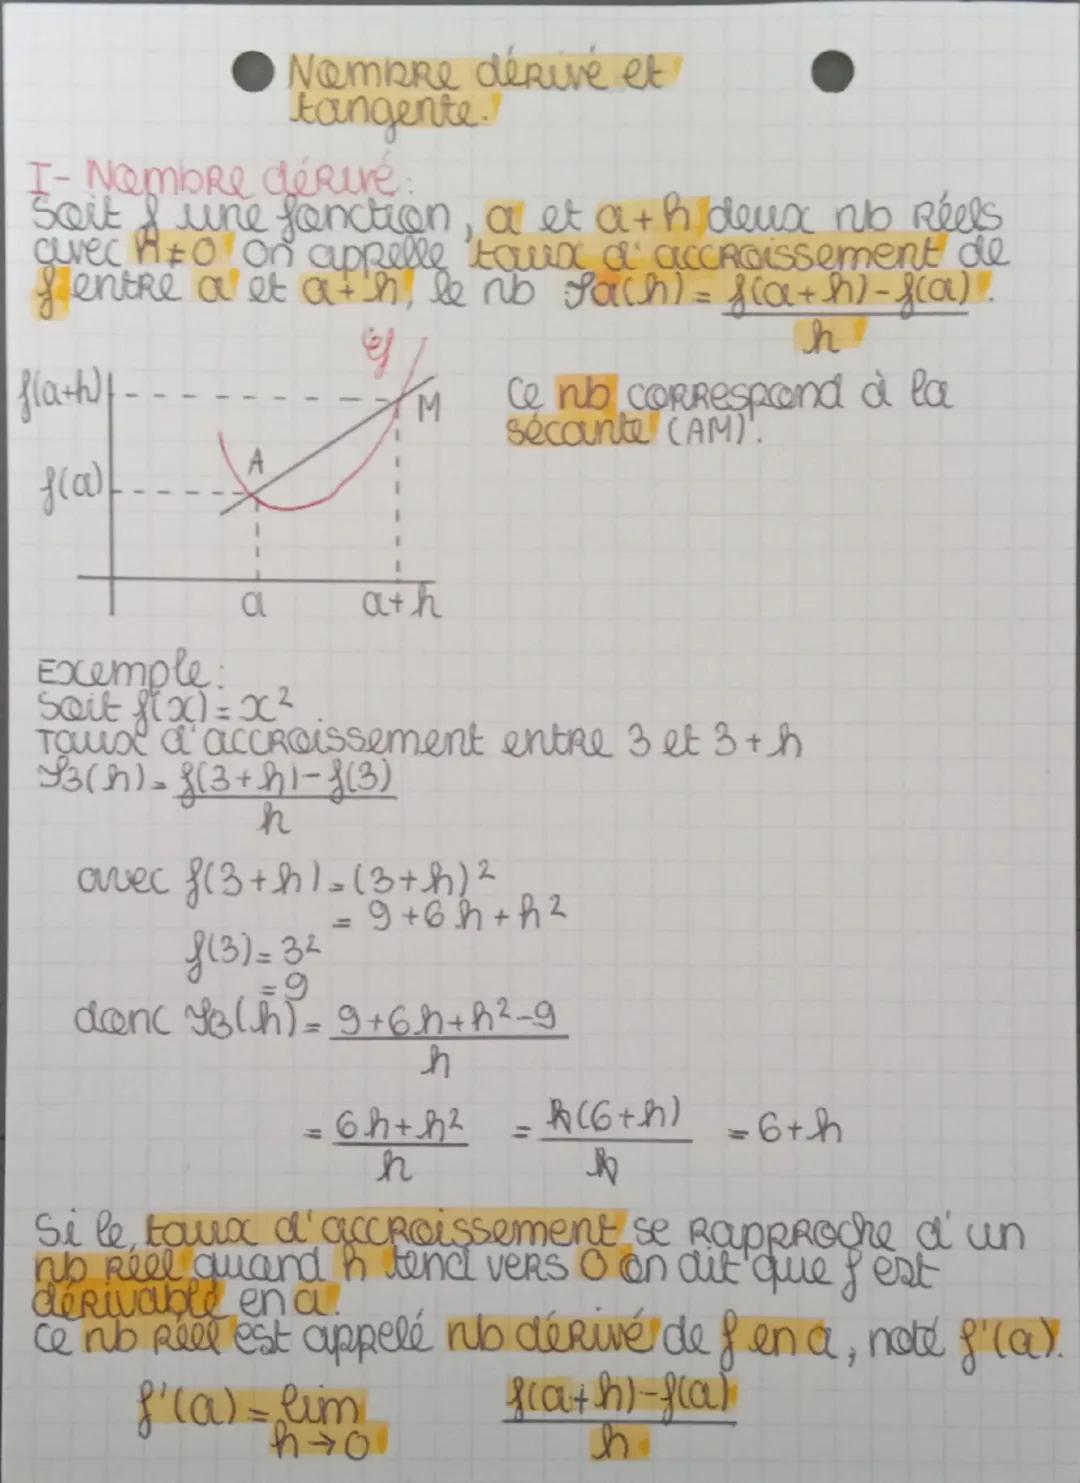 Nombre dérivé et
tangente.
I- Nombre dérivé:
Soit f une fonction, a et a+h deux nb réels
avec h≠0 on appelle taux d'accroissement de
f entre a et a+h, le nb τa(h) = f(a+h)-f(a).
h
Cf
f(a+h)
M
Ce nb correspond à la
sécante (AM).
A
f(a)
a
a+h
Exemple:
Soit f(x)=x²
Taux d'accroissement entre 3 et 3+h
τ3(h) = f(3+h)-f(3)
h
avec f(3+h)=(3+h)²
= 9+6h+h²
f(3)=3²
=9
donc τ3(h)= 9+6h+h²-9
h
= 6h+h² = h(6+h) = 6+h
h h
Si le taux d'accroissement se rapproche d'un
nb réel quand h tend vers 0 on dit que f est
dérivable en a.
Ce nb réel est appelé nb dérivé de f en a, noté f'(a).
f'(a) = lim f(a+h)-f(a)
h→0 h